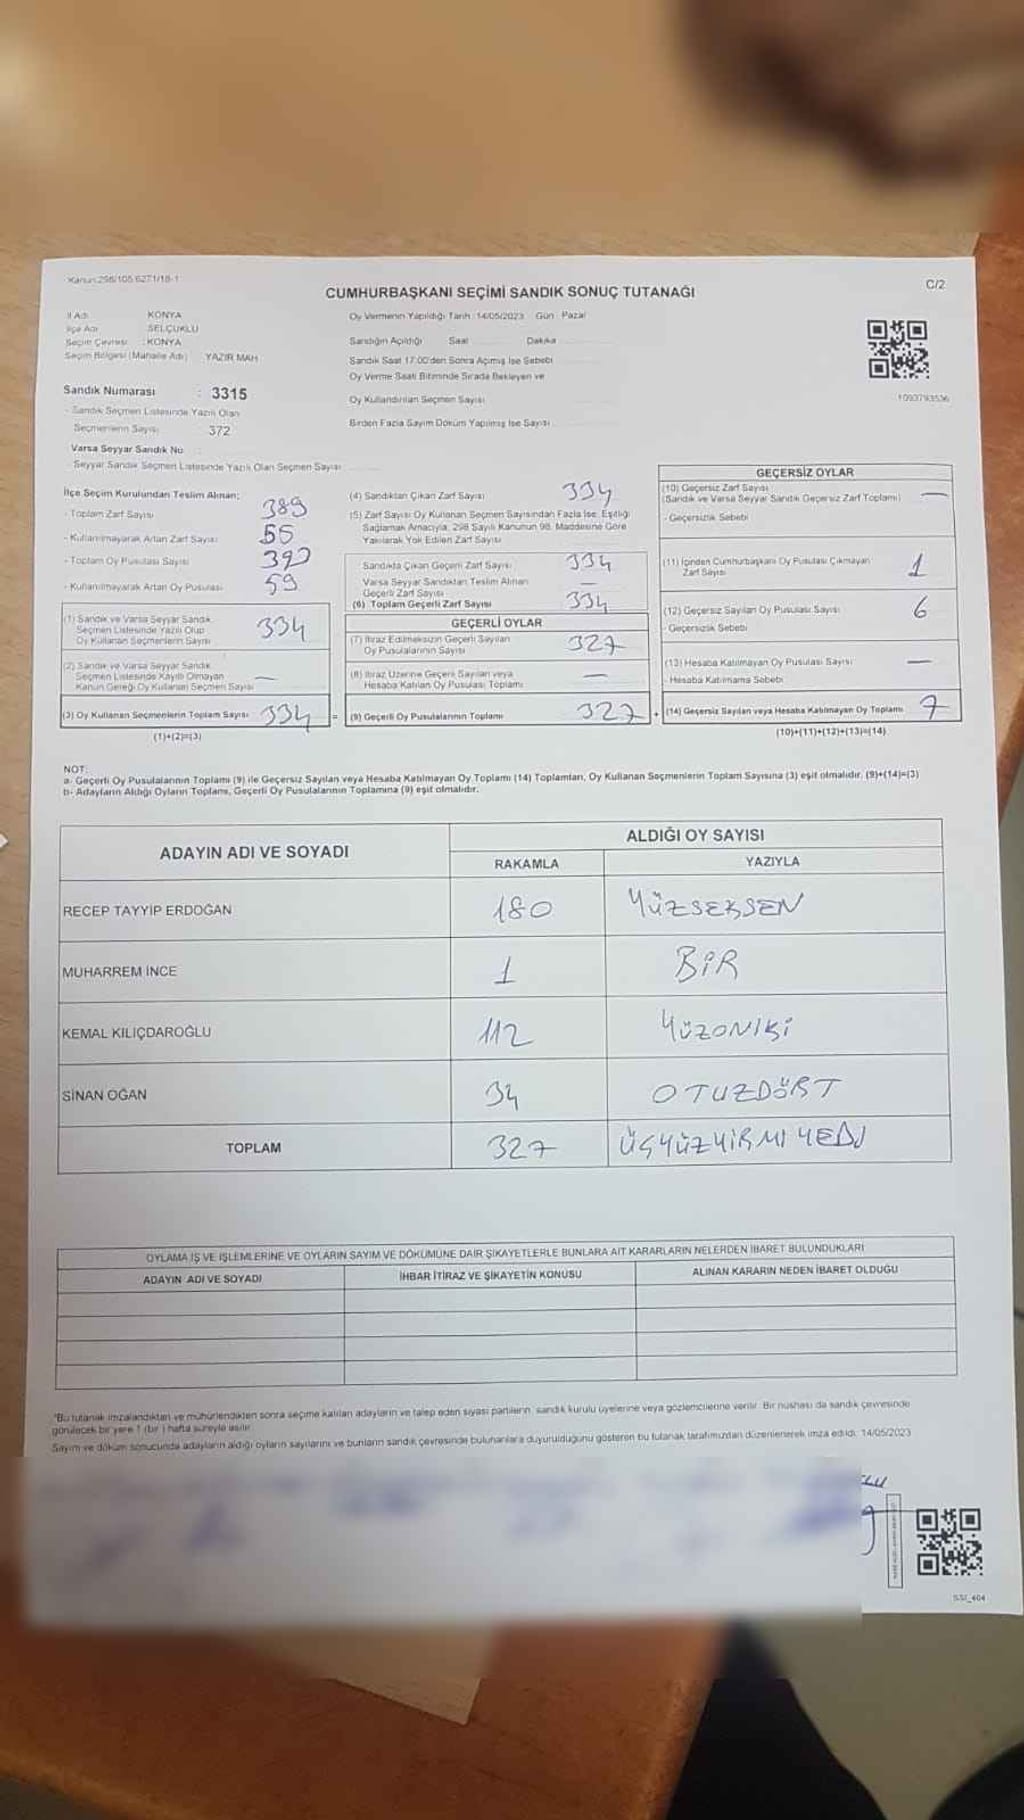 Kanun:298/105 6271/18-1
C/2
CUMHURBAŞKANI SEÇİMİ SANDIK SONUÇ TUTANAĞI
İl Adı KONYA
İlçe Adı SELÇUKLU
Seçim Çevresi : KONYA
Seçim Bölgesi (Mahalle Adı) YAZIR MAH
Sandık Numarası : 3315
- Sandık Seçmen Listesinde Yazılı Olan
Seçmenlerin Sayısı 372
Varsa Seyyar Sandık No
- Seyyar Sandık Seçmen Listesinde Yazılı Olan Seçmen Sayısı
Oy Vermenin Yapıldığı Tarih :14/05/2023 Gün : Pazar
Sandığın Açıldığı Saat Dakika
Sandık Saat 17:00'den Sonra Açımış İse Sebebi
Oy Verme Saati Bitiminde Sırada Bekleyen ve
Oy Kullandırılan Seçmen Sayısı
Birden Fazla Sayım Döküm Yapılmış İse Sayısı
1093793536
İlçe Seçim Kurulundan Teslim Alınan;
- Toplam Zarf Sayısı 389
- Kullanılmayarak Artan Zarf Sayısı 55
- Toplam Oy Pusulası Sayısı
- Kullanılmayarak Artan Oy Pusulası 59
(1) Sandık ve Varsa Seyyar Sandık
Seçmen Listesinde Yazılı Olup
Oy Kullanan Seçmenlerin Sayısı 334
(2) Sandık ve Varsa Seyyar Sandık
Seçmen Listesinde Kayıtlı Olmayan
Kanun Gereği Oy Kullanan Seçmen Sayısı —
(3) Oy Kullanan Seçmenlerin Toplam Sayısı 334 =
(1)+(2)=(3)
(4) Sandıktan Çıkan Zarf Sayısı 334
(5) Zarf Sayısı Oy Kullanan Seçmen Sayısından Fazla İse; Eşitliği
Sağlamak Amacıyla, 298 Sayılı Kanunun 98. Maddesine Göre
Yakılarak Yok Edilen Zarf Sayısı
Sandıkta Çıkan Geçerli Zarf Sayısı 334
Varsa Seyyar Sandıktan Teslim Alınan
Geçerli Zarf Sayısı —
(6) Toplam Geçerli Zarf Sayısı 334
GEÇERLİ OYLAR
(7) İtiraz Edilmeksizin Geçerli Sayılan
Oy Pusulalarının Sayısı 327
(8) İtiraz Üzerine Geçerli Sayılan veya
Hesaba Katılan Oy Pusulası Toplamı —
(9) Geçerli Oy Pusulalarının Toplamı 327 +
GEÇERSİZ OYLAR
(10) Geçersiz Zarf Sayısı
(Sandık ve Varsa Seyyar Sandık Geçersiz Zarf Toplamı) —
- Geçersizlik Sebebi
(11) İçinden Cumhurbaşkanı Oy Pusulası Çıkmayan
Zarf Sayısı 1
(12) Geçersiz Sayılan Oy Pusulası Sayısı 6
- Geçersizlik Sebebi
(13) Hesaba Katılmayan Oy Pusulası Sayısı —
- Hesaba Katılmama Sebebi
(14) Geçersiz Sayılan veya Hesaba Katılmayan Oy Toplamı 7
(10)+(11)+(12)+(13)=(14)
NOT:
a- Geçerli Oy Pusulalarının Toplamı (9) ile Geçersiz Sayılan veya Hesaba Katılmayan Oy Toplamı (14) Toplamları, Oy Kullanan Seçmenlerin Toplam Sayısına (3) eşit olmalıdır. (9)+(14)=(3)
b- Adayların Aldığı Oyların Toplamı, Geçerli Oy Pusulalarının Toplamına (9) eşit olmalıdır.
ADAYIN ADI VE SOYADI
ALDIĞI OY SAYISI
RAKAMLA YAZIYLA
RECEP TAYYİP ERDOĞAN 180 YÜZSEKSEN
MUHARREM İNCE 1 BİR
KEMAL KILIÇDAROĞLU 112 YÜZONİKİ
SİNAN OĞAN 34 OTUZDÖRT
TOPLAM 327 ÜÇYÜZYİRMİ YEDİ
OYLAMA İŞ VE İŞLEMLERİNE VE OYLARIN SAYIM VE DÖKÜMÜNE DAİR ŞİKAYETLERLE BUNLARA AİT KARARLARIN NELERDEN İBARET BULUNDUKLARI
ADAYIN ADI VE SOYADI İHBAR İTİRAZ VE ŞİKAYETİN KONUSU ALINAN KARARIN NEDEN İBARET OLDUĞU
*Bu tutanak imzalandıktan ve mühürlendikten sonra seçime katılan adayların ve talep eden siyasi partilerin, sandık kurulu üyelerine veya gözlemcilerine verilir. Bir nüshası da sandık çevresinde
görülecek bir yere 1 (bir ) hafta süreyle asılır.
Sayım ve döküm sonucunda adayların aldığı oyların sayılarını ve bunların sandık çevresinde bulunanlara duyurulduğunu gösteren bu tutanak tarafımızdan düzenlenerek imza edildi. 14/05/2023